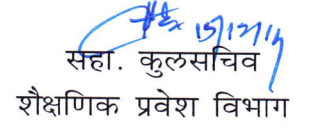 15/12/14
सहा. कुलसचिव
शैक्षणिक प्रवेश विभाग